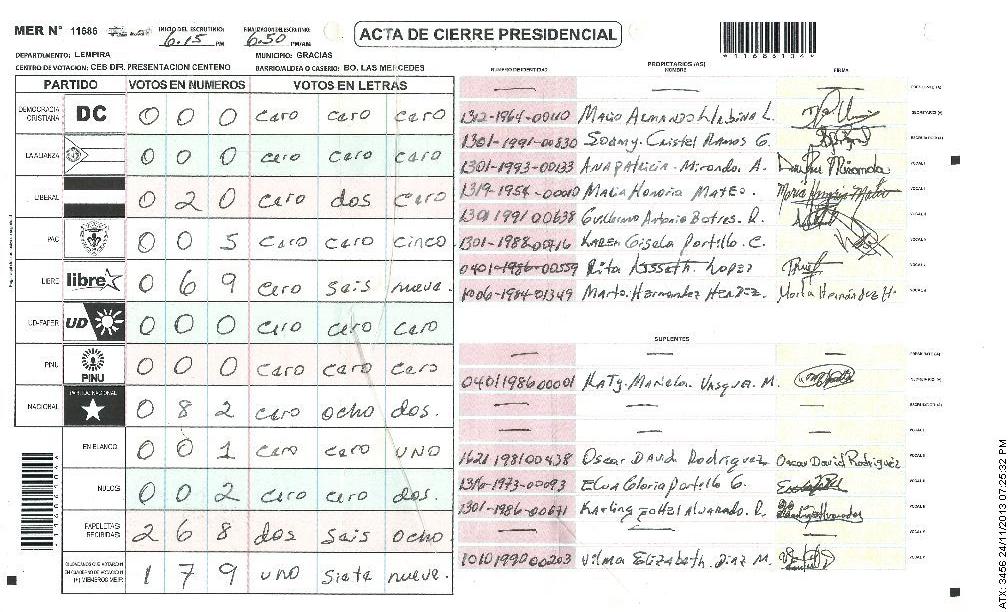 MER N° 11686 INICIO DEL ESCRUTINIO: 6:15 PM FINALIZACION DEL ESCRUTINIO: 6:50 PM/AM
ACTA DE CIERRE PRESIDENCIAL
DEPARTAMENTO: LEMPIRA MUNICIPIO: GRACIAS
CENTRO DE VOTACION: CEB DR. PRESENTACION CENTENO BARRIO/ALDEA O CASERIO: BO. LAS MERCEDES
PARTIDO VOTOS EN NUMEROS VOTOS EN LETRAS
DEMOCRACIA CRISTIANA DC 0 0 0 cero cero cero
LA ALIANZA 0 0 0 cero cero cero
LIBERAL 0 2 0 cero dos cero
PAC 0 0 5 cero cero cinco
LIBRE libre 0 6 9 cero seis nueve.
UD-FAPER UD 0 0 0 cero cero cero
PINU PINU 0 0 0 cero cero cero
NACIONAL PARTIDO NACIONAL 0 8 2 cero ocho dos.
EN BLANCO 0 0 1 cero cero UNO
NULOS 0 0 2 cero cero dos.
PAPELETAS RECIBIDAS 2 6 8 dos seis ocho
1 7 9 UNO siete nueve.
NUMERO DE IDENTIDAD PROPIETARIOS (AS) NOMBRE FIRMA
1301-1991-00830
1301-1993-00133 ANA PATRICIA Miranda A.
1319-1954-00010 MARIA Honoria MATEO.
1301 1991 00638 Guillermo Antonio Batres. R.
1301-1988-00716 KAREN Gisela Portillo C.
0401-1986-00559 Rita Lopez
1006-1984-01349 Marta. Hernandez
SUPLENTES
0401198600001 KATY. Mariela. Vasquez. M.
1621 1981 00438 Oscar DAVID Rodriguez Oscar David Rodriguez
1316-1973-00093 Gloria Portillo G.
1301-1986-00671 Alvarado. R.
1010199000203 Vilma Elizabeth. Diaz M.
ATX: 3456 24/11/2013 07:25:32 PM